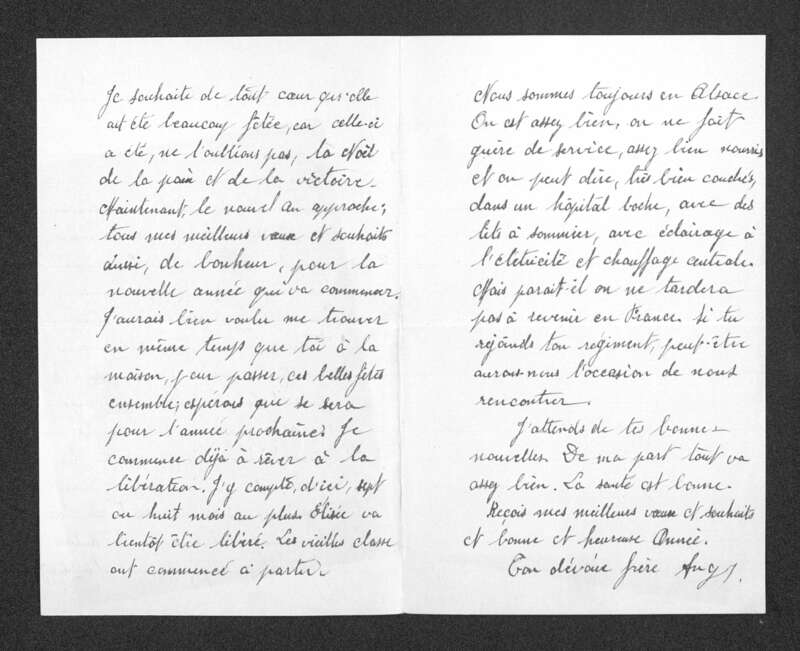 Je souhaite de tout cœur qu'elle
ait été beaucoup fêtée, car celle-ci
a été, ne l'oublions pas, la Noël
de la paix et de la victoire.
Maintenant, le nouvel an approche;
tous mes meilleurs vœux et souhaits
aussi, de bonheur, pour la
nouvelle année qui va commencer.
J'aurais bien voulu me trouver
en même temps que toi à la
maison, pour passer, ces belles fêtes
ensemble; espérons que se sera
pour l'année prochaine. Je
commence déjà à rêver à la
libération. J'y compte, d'ici, sept
ou huit mois au plus. Elisée va
bientôt être libéré. Les vieilles classe
ont commencé à partir.
Nous sommes toujours en Alsace.
On est assez bien, on ne fait
guère de service, assez bien nourris
et on peut dire, très bien couchés,
dans un hôpital boche, avec des
lits à sommier, avec éclairage à
l'életricité et chauffage centrale.
Mais parait-il on ne tardera
pas à revenir en France. Si tu
rejoinds ton regiment, peut-être
aurons-nous l'occasion de nous
rencontrer.
J'attends de tes bonnes
nouvelles. De ma part tout va
assez bien. La santé est bonne.
Reçois mes meilleurs vœux et souhaits
et bonne et heureuse Année.
Ton dévoué frère Aug